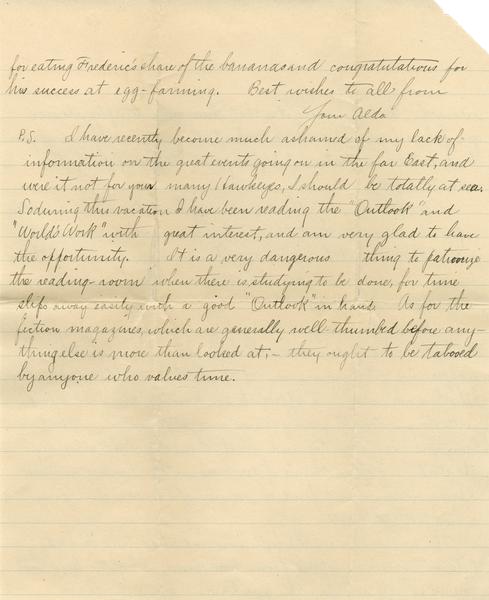 for eating Frederic's share of the bananas and congratulations for
his success at egg-farming. Best wishes to all from
Your Aldo
P.S. I have recently become much ashamed of my lack of
information on the great events going on in the far East, and
were it not for your many Hawkeyes, I should be totally at sea.
So during this vacation I have been reading the "Outlook" and
"World's Work" with great interest, and am very glad to have
the opportunity. It is a very dangerous thing to patronize
the reading-room when there is studying to be done, for time
slips away easily with a good "Outlook" in hand. As for the
fiction magazines, which are generally well-thumbed before any-
thing else is more than looked at, - they ought to be tabooed
by anyone who values time.